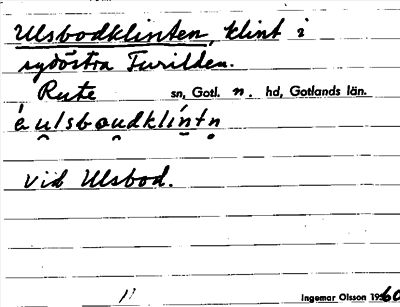 Ulsbodklinten, klint i
sydöstra Furilden.
Rute sn, Gotl. n. hd, Gotlands län.
vid Ulsbod.
Ingemar Olsson 1960